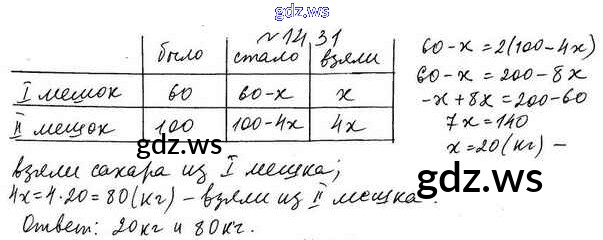 gdz.ws
№14.31
было стало взяли
I мешок 60 60-x x
II мешок 100 100-4x 4x
60-x=2(100-4x)
60-x=200-8x
-x+8x=200-60
7x=140
x=20(кг) -
взяли сахара из I мешка;
4x=4·20=80(кг) - взяли из II мешка.
Ответ: 20кг и 80кг.
gdz.ws
gdz.ws